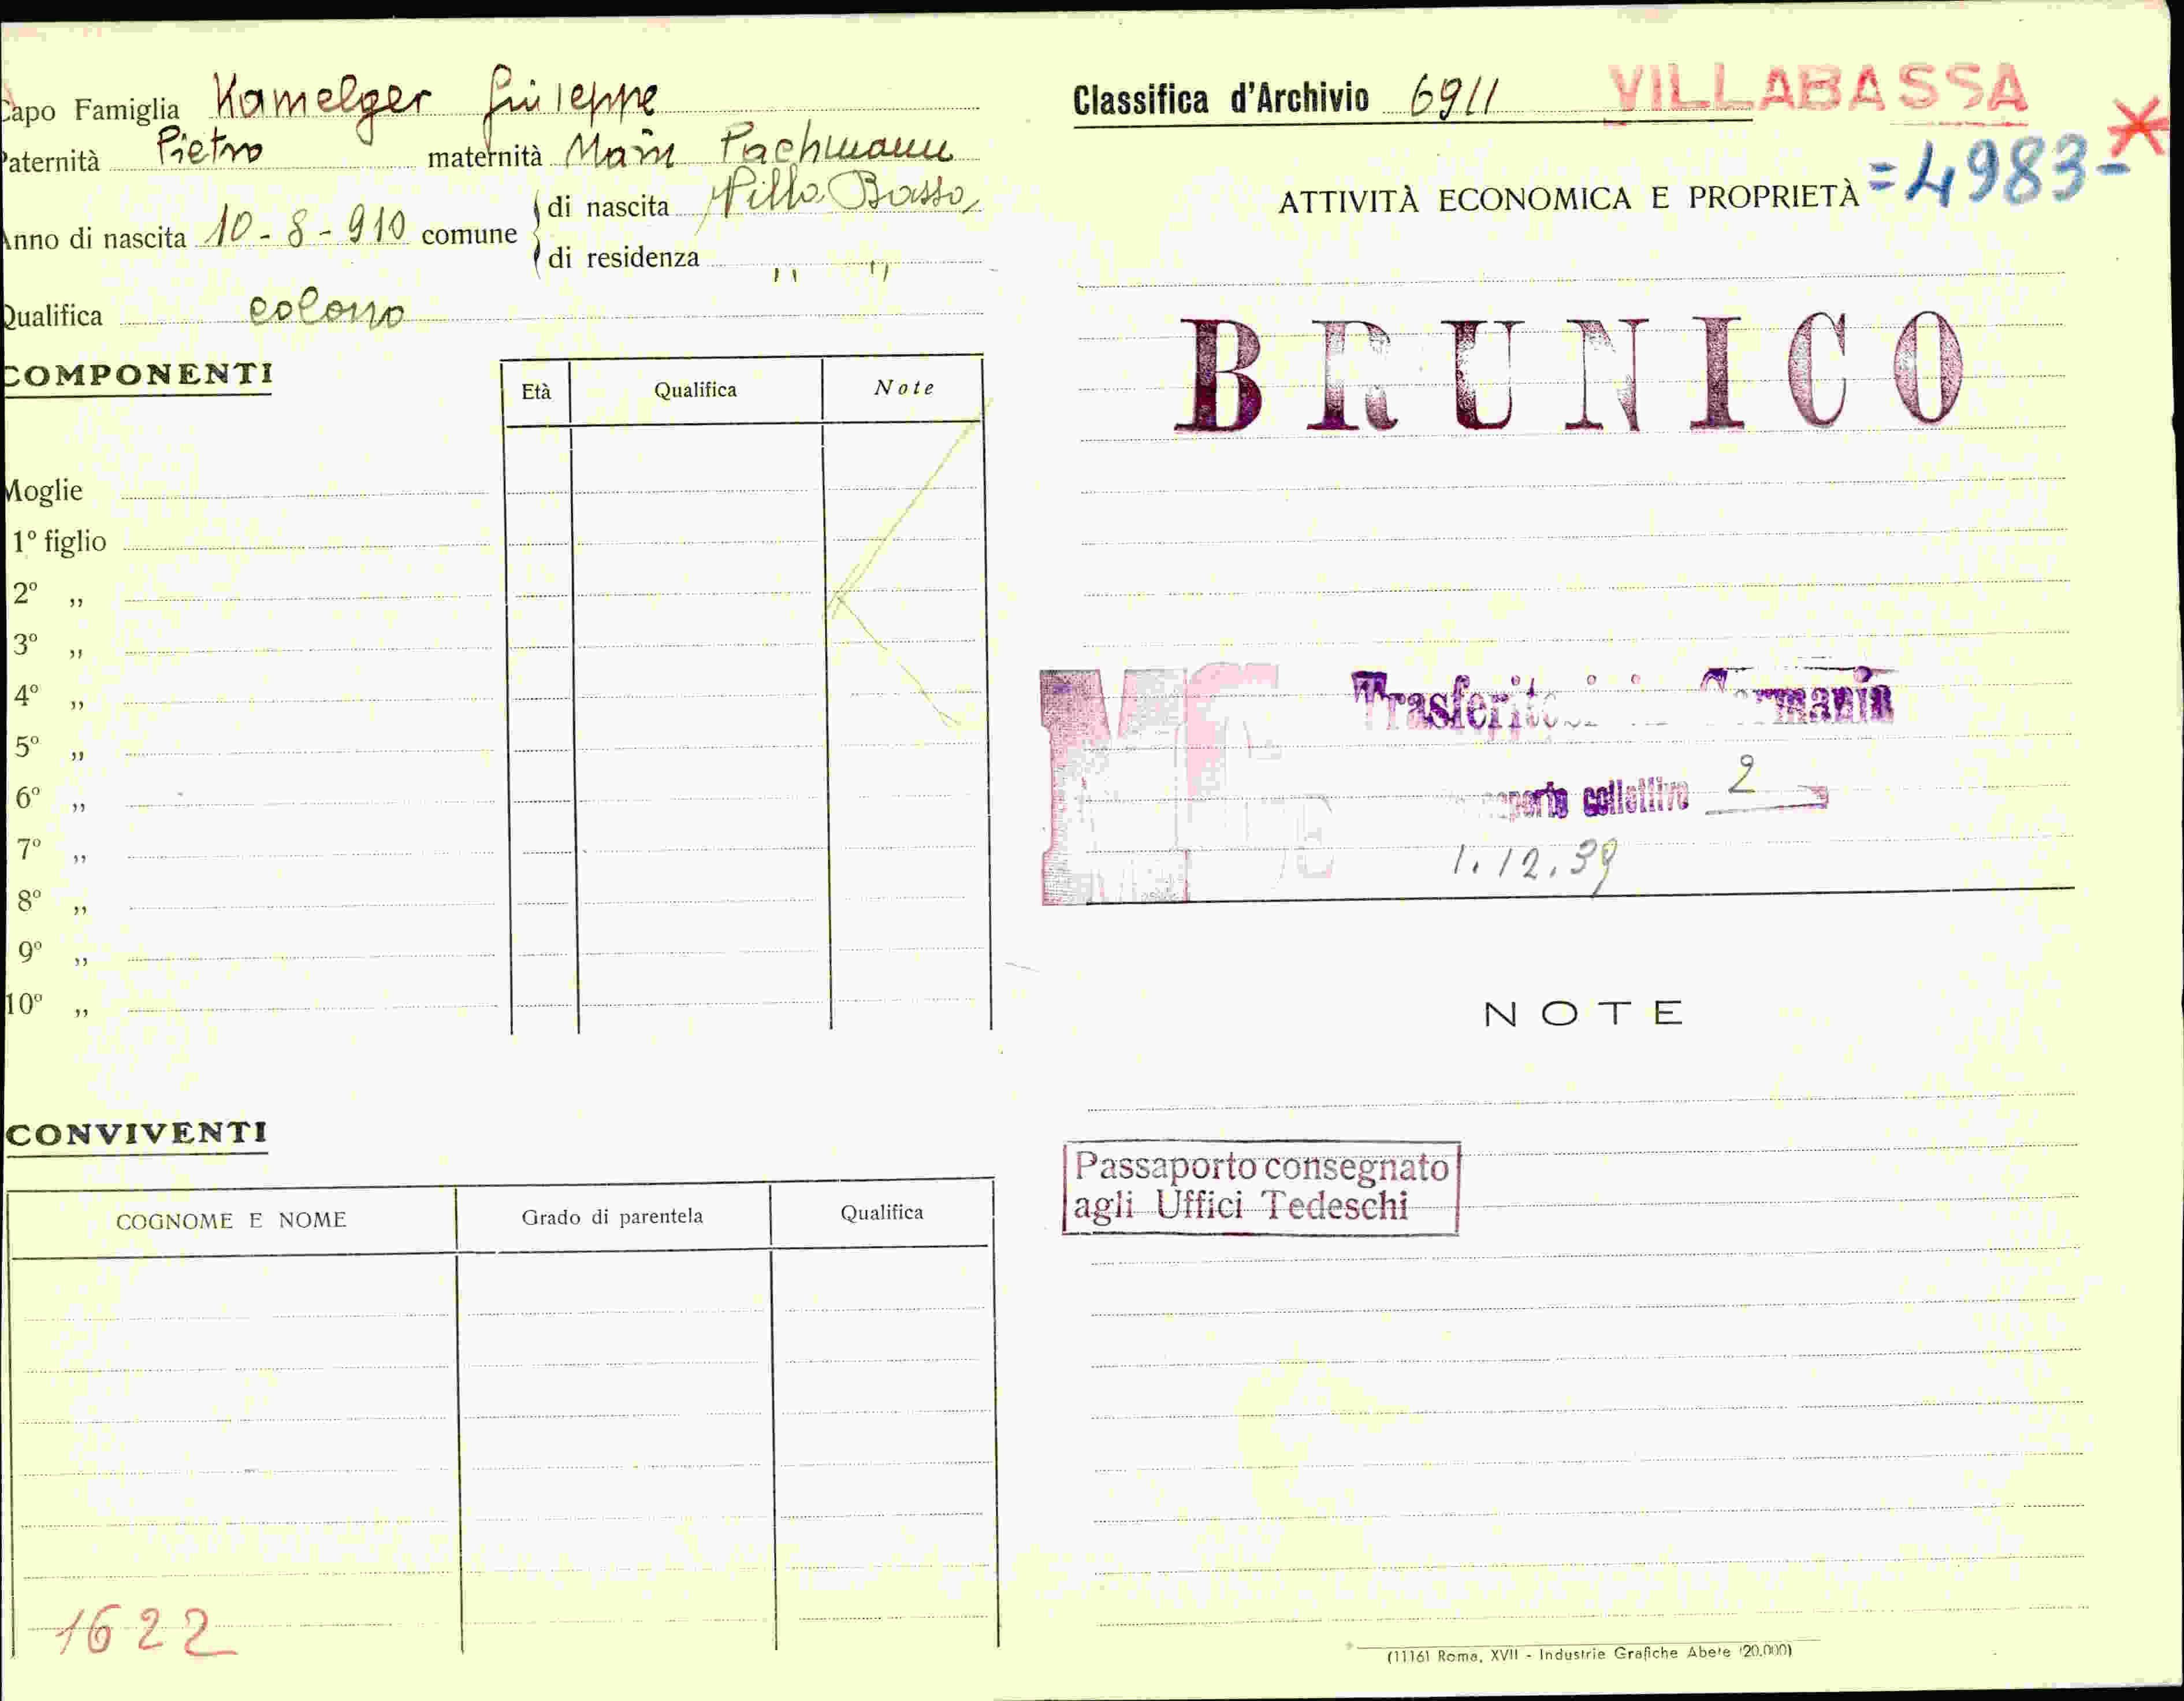 Capo Famiglia Kamelger Giuseppe
Paternità Pietro maternità Maria Pachmann
Anno di nascita 10-8-910 comune
di nascita Villa Bassa
di residenza ,, ,,
Qualifica colono
COMPONENTI
Età Qualifica Note
Moglie
1º figlio
2º ,,
3º ,,
4º ,,
5º ,,
6º ,,
7º ,,
8º ,,
9º ,,
10º ,,
CONVIVENTI
COGNOME E NOME Grado di parentela Qualifica
1622
Classifica d'Archivio 6911 VILLABASSA
ATTIVITÀ ECONOMICA E PROPRIETÀ =4983-
BRUNICO
Trasferitosi in Germania
collettivo 2
1.12.39
NOTE
Passaporto consegnato
agli Uffici Tedeschi
(11161 Roma, XVII - Industrie Grafiche Abete (20.000)